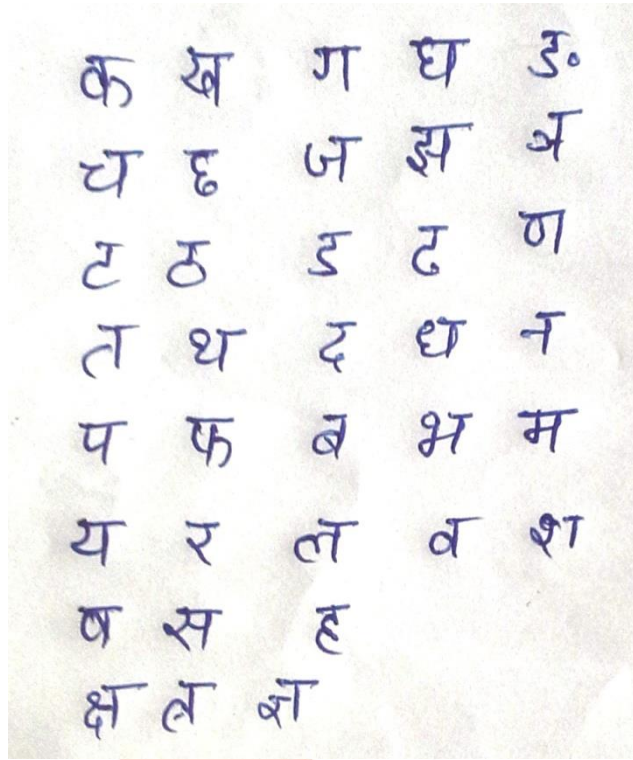 क ख ग घ ङ
च छ ज झ ञ
ट ठ ड ढ ण
त थ द ध न
प फ ब भ म
य र ल व श
ष स ह
क्ष त्र ज्ञ